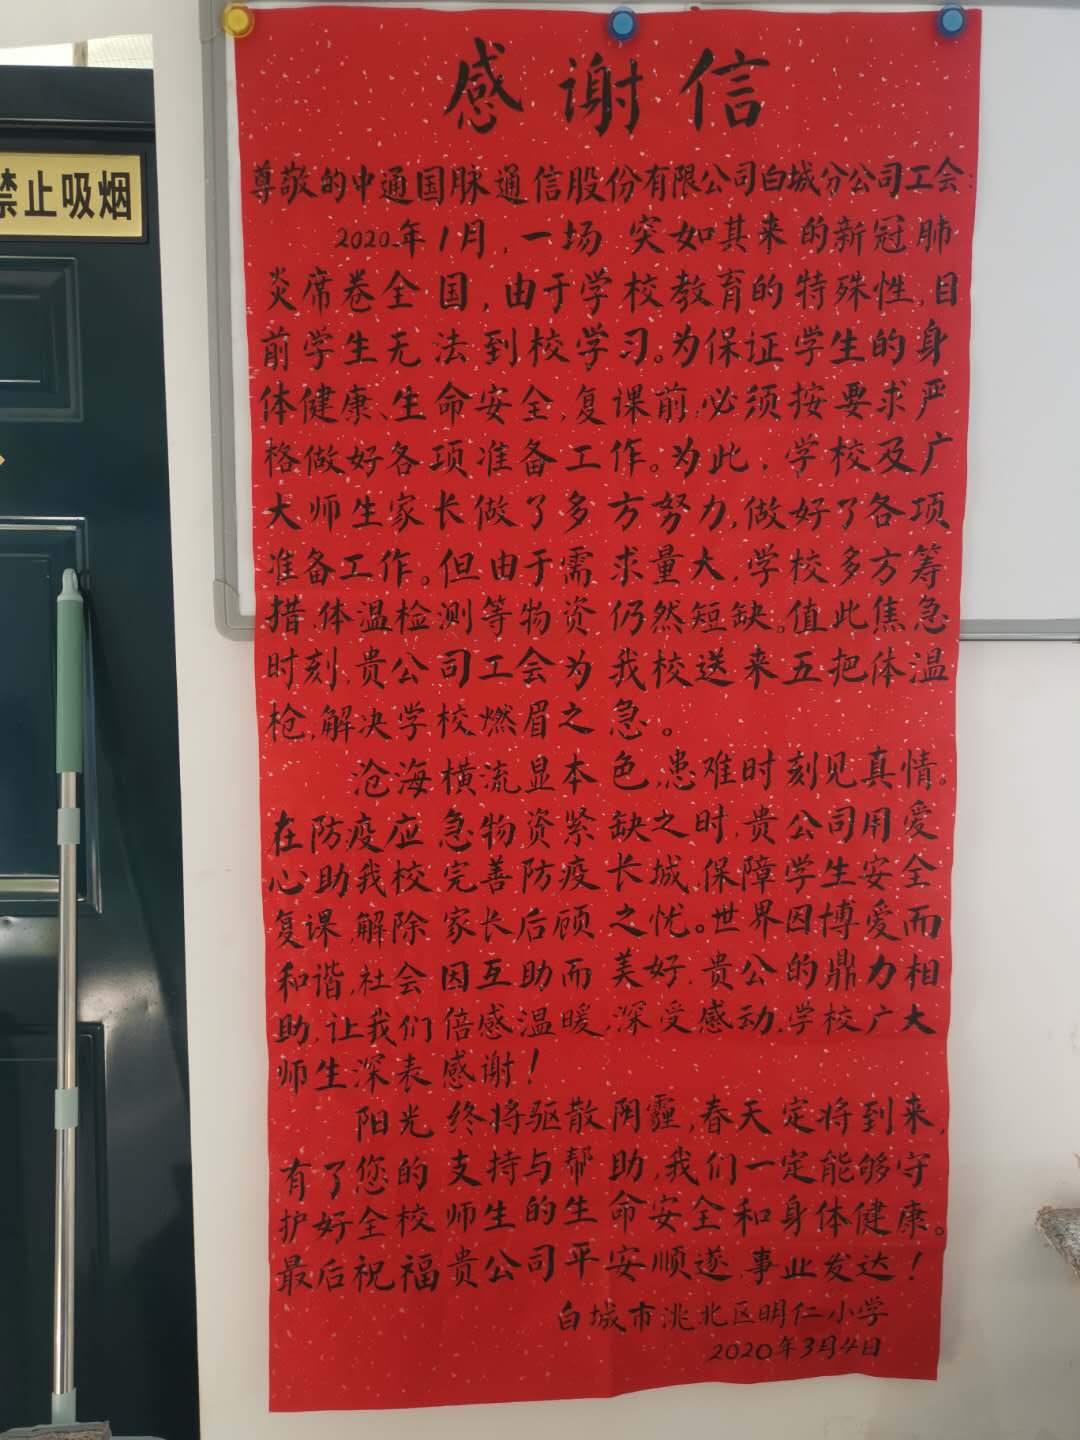 感谢信
尊敬的中通国脉通信股份有限公司白城分公司工会:
2020年1月,一场突如其来的新冠肺
炎席卷全国,由于学校教育的特殊性,目
前学生无法到校学习。为保证学生的身
体健康、生命安全,复课前,必须按要求严
格做好各项准备工作。为此,学校及广
大师生家长做了多方努力,做好了各项
准备工作。但由于需求量大,学校多方筹
措,体温检测等物资仍然短缺。值此焦急
时刻,贵公司工会为我校送来五把体温
枪,解决学校燃眉之急。
沧海横流显本色,患难时刻见真情。
在防疫应急物资紧缺之时,贵公司用爱
心助我校完善防疫长城,保障学生安全
复课,解除家长后顾之忧。世界因博爱而
和谐,社会因互助而美好,贵公的鼎力相
助,让我们倍感温暖,深受感动,学校广大
师生深表感谢!
阳光终将驱散阴霾,春天定将到来,
有了您的支持与帮助,我们一定能够守
护好全校师生的生命安全和身体健康。
最后祝福贵公司平安顺遂,事业发达!
白城市洮北区明仁小学
2020年3月4日
禁止吸烟